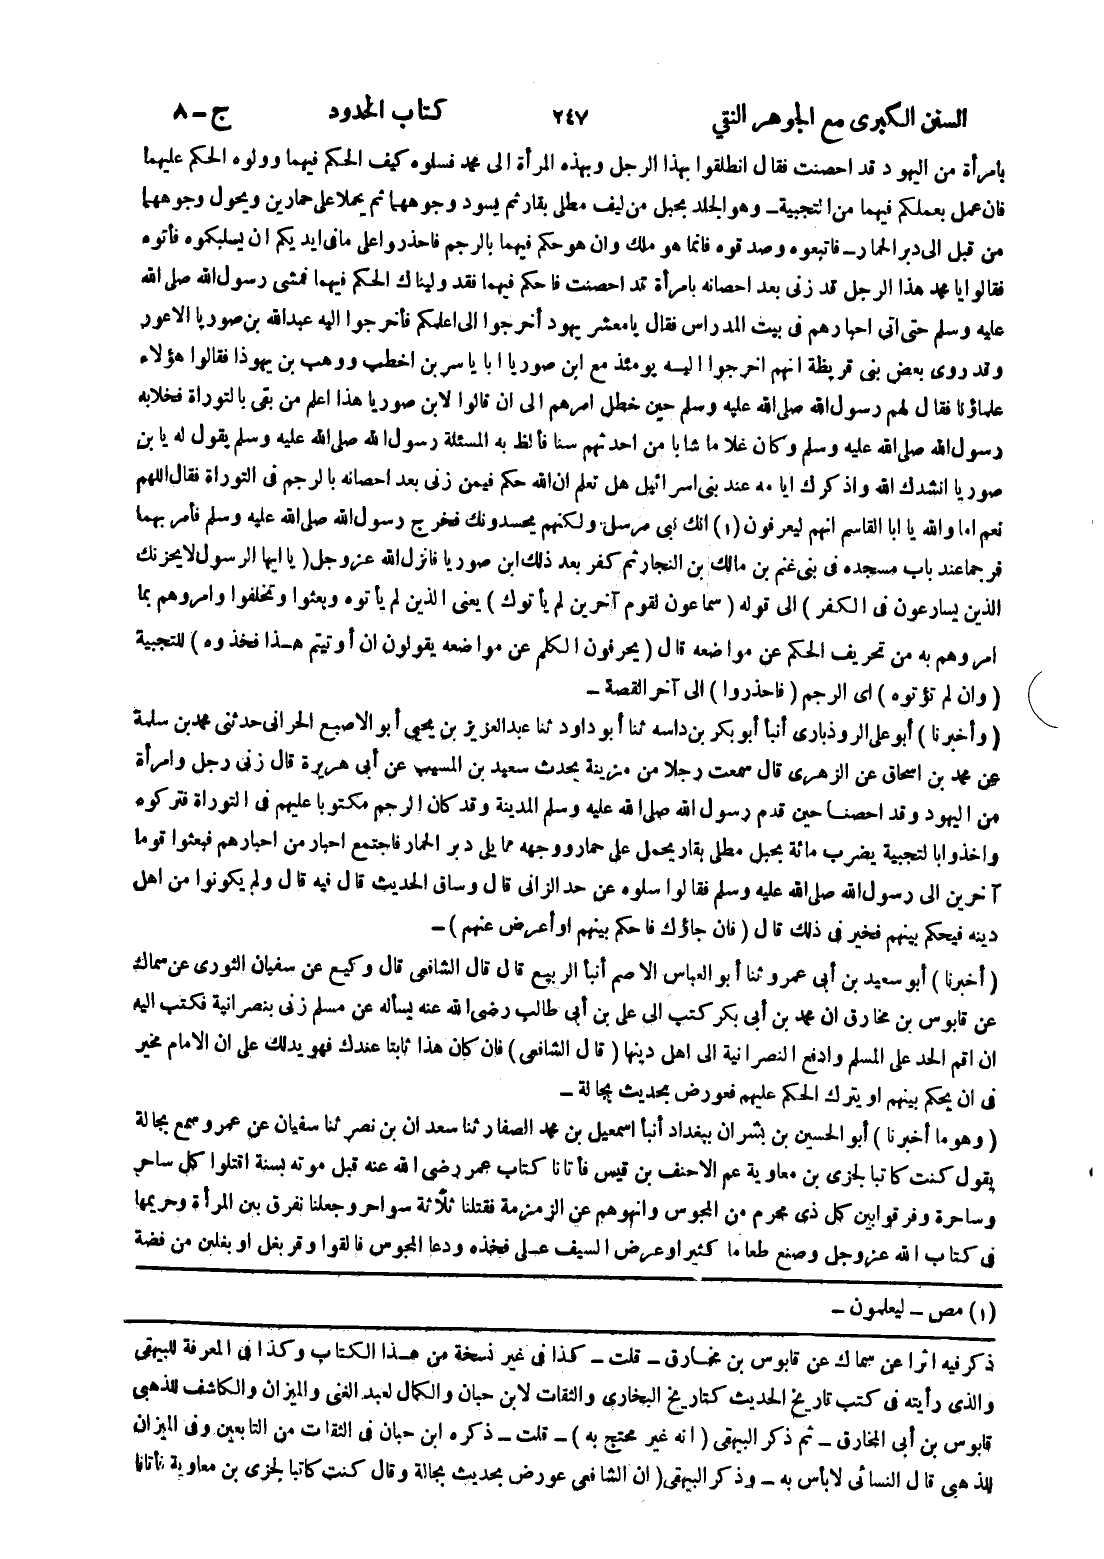 السنن الكبرى مع الجوهر النقي ٢٤٧ كتاب الحدود ج - ٨
بأمرأة من اليهود قد احصنت فقال انطلقوا بهذا الرجل وبهذه المرأة الى محمد فسلوه كيف الحكم فيهما وولوه الحكم عليهما
فان عمل بعملكم فيهما من التجبية - وهو الجلد بحبل من ليف مطلى بقار ثم يسود وجوههما ثم يحملا على حمارين ويحول وجوههما
من قبل الى دبر الحمار - فاتبعوه وصدقوه فانما هو ملك وان هو حكم فيهما بالرجم فاحذروا على مافى ايديكم ان يسلبكموه فأتوه
فقالوا يا محمد هذا الرجل قد زنى بعد احصانه بامرأة قد احصنت فاحكم فيهما فقد وليناك الحكم فيهما فمشى رسول الله صلى الله
عليه وسلم حتى اتى احبارهم فى بيت المدراس فقال يا معشر يهود أخرجوا الى اعلمكم فأخرجوا اليه عبدالله بن صوريا الاعور
وقد روى بعض بنى قريظة انهم اخرجوا اليه يومئذ مع ابن صوريا ابا ياسر بن اخطب ووهب بن يهوذا فقالوا هؤلاء
علماؤنا فقال لهم رسول الله صلى الله عليه وسلم حين خطل امرهم الى ان قالوا لابن صوريا هذا اعلم من بقى بالتوراة فخلابه
رسول الله صلى الله عليه وسلم وكان غلاما شابا من احدثهم سنا فألظ به المسئلة رسول الله صلى الله عليه وسلم يقول له يا بن
صوريا انشدك الله واذكرك ايامه عند بنى اسرائيل هل تعلم ان الله حكم فيمن زنى بعد احصانه بالرجم فى التوراة فقال اللهم
نعم اما والله يا ابا القاسم انهم ليعرفون (١) انك نبى مرسل ولكنهم يحسدونك فخرج رسول الله صلى الله عليه وسلم فأمر بهما
فرجما عند باب مسجده فى بنى غنم بن مالك بن النجار ثم كفر بعد ذلك ابن صوريا فانزل الله عزوجل ( يا ايها الرسول لا يحزنك
الذين يسارعون فى الكفر ) الى قوله ( سماعون لقوم آخرين لم يأتوك ) يعنى الذين لم يأتوه وبعثوا وتخلفوا وامروهم بما
امروهم به من تحريف الحكم عن مواضعه قال ( يحرفون الكلم عن مواضعه يقولون ان أوتيتم هذا فخذوه ) للتجبية
( وان لم تؤتوه ) اى الرجم ( فاحذروا ) الى آخر القصة -
( وأخبرنا ) أبو على الروذبارى أنبأ أبو بكر بن داسه ثنا أبو داود ثنا عبدالعزيز بن يحيى أبو الاصبع الحرانى حدثنى محمد بن سلمة
عن محمد بن اسحاق عن الزهرى قال سمعت رجلا من مزينة يحدث سعيد بن المسيب عن أبى هريرة قال زنى رجل وامرأة
من اليهود وقد احصنا حين قدم رسول الله صلى الله عليه وسلم المدينة وقد كان الرجم مكتوبا عليهم فى التوراة فتركوه
واخذوا بالتجبية يضرب مائة بحبل مطلى بقار يحمل على حمار ووجهه مما يلى دبر الحمار فاجتمع احبار من احبارهم فبعثوا قوما
آخرين الى رسول الله صلى الله عليه وسلم فقالوا سلوه عن حد الزانى قال وساق الحديث قال فيه قال ولم يكونوا من اهل
دينه فيحكم بينهم فخير فى ذلك قال ( فان جاؤك فاحكم بينهم او أعرض عنهم ) -
( أخبرنا ) أبو سعيد بن أبى عمرو ثنا أبو العباس الاصم أنبأ الربيع قال قال الشافعى قال وكيع عن سفيان الثورى عن سماك
عن قابوس بن مخارق ان محمد بن أبى بكر كتب الى على بن أبى طالب رضى الله عنه يسأله عن مسلم زنى بنصرانية فكتب اليه
ان اقم الحد على المسلم وادفع النصرانية الى اهل دينها ( قال الشافعى ) فان كان هذا ثابتا عندك فهو يدلك على ان الامام مخير
فى ان يحكم بينهم او يترك الحكم عليهم فعورض بحديث بجالة -
( وهو ما أخبرنا ) أبو الحسين بن بشران ببغداد أنبأ اسمعيل بن محمد الصفار ثنا سعدان بن نصر ثنا سفيان عن عمرو سمع بجالة
يقول كنت كاتبا لجزى بن معاوية عم الاحنف بن قيس فأتانا كتاب عمر رضى الله عنه قبل موته بسنة اقتلوا كل ساحر
وساحرة وفرقوا بين كل ذى محرم من المجوس وانهوهم عن الزمزمة فقتلنا ثلاثة سواحر وجعلنا نفرق بين المرأة وحريمها
فى كتاب الله عزوجل وصنع طعاما كثيرا وعرض السيف على فخذه ودعا المجوس فالقوا وقر بغل او بغلين من فضة
(١) مص - ليعلمون -
ذكر فيه اثرا عن سماك عن قابوس بن مخارق - قلت - كذا فى غير نسخة من هذا الكتاب وكذا فى المعرفة للبيهقى
والذى رأيته فى كتب تاريخ الحديث كتاريخ البخارى والثقات لابن حبان والكمال لعبد الغنى والميزان والكاشف للذهبى
قابوس بن أبى المخارق - ثم ذكر البيهقى ( انه غير محتج به ) - قلت - ذكره ابن حبان فى الثقات من التابعين وفى الميزان
للذهبى قال النسائى لا بأس به - وذكر البيهقى ( ان الشافعى عورض بحديث بجالة وقال كنت كاتبا لجزى بن معاوية فأتانا